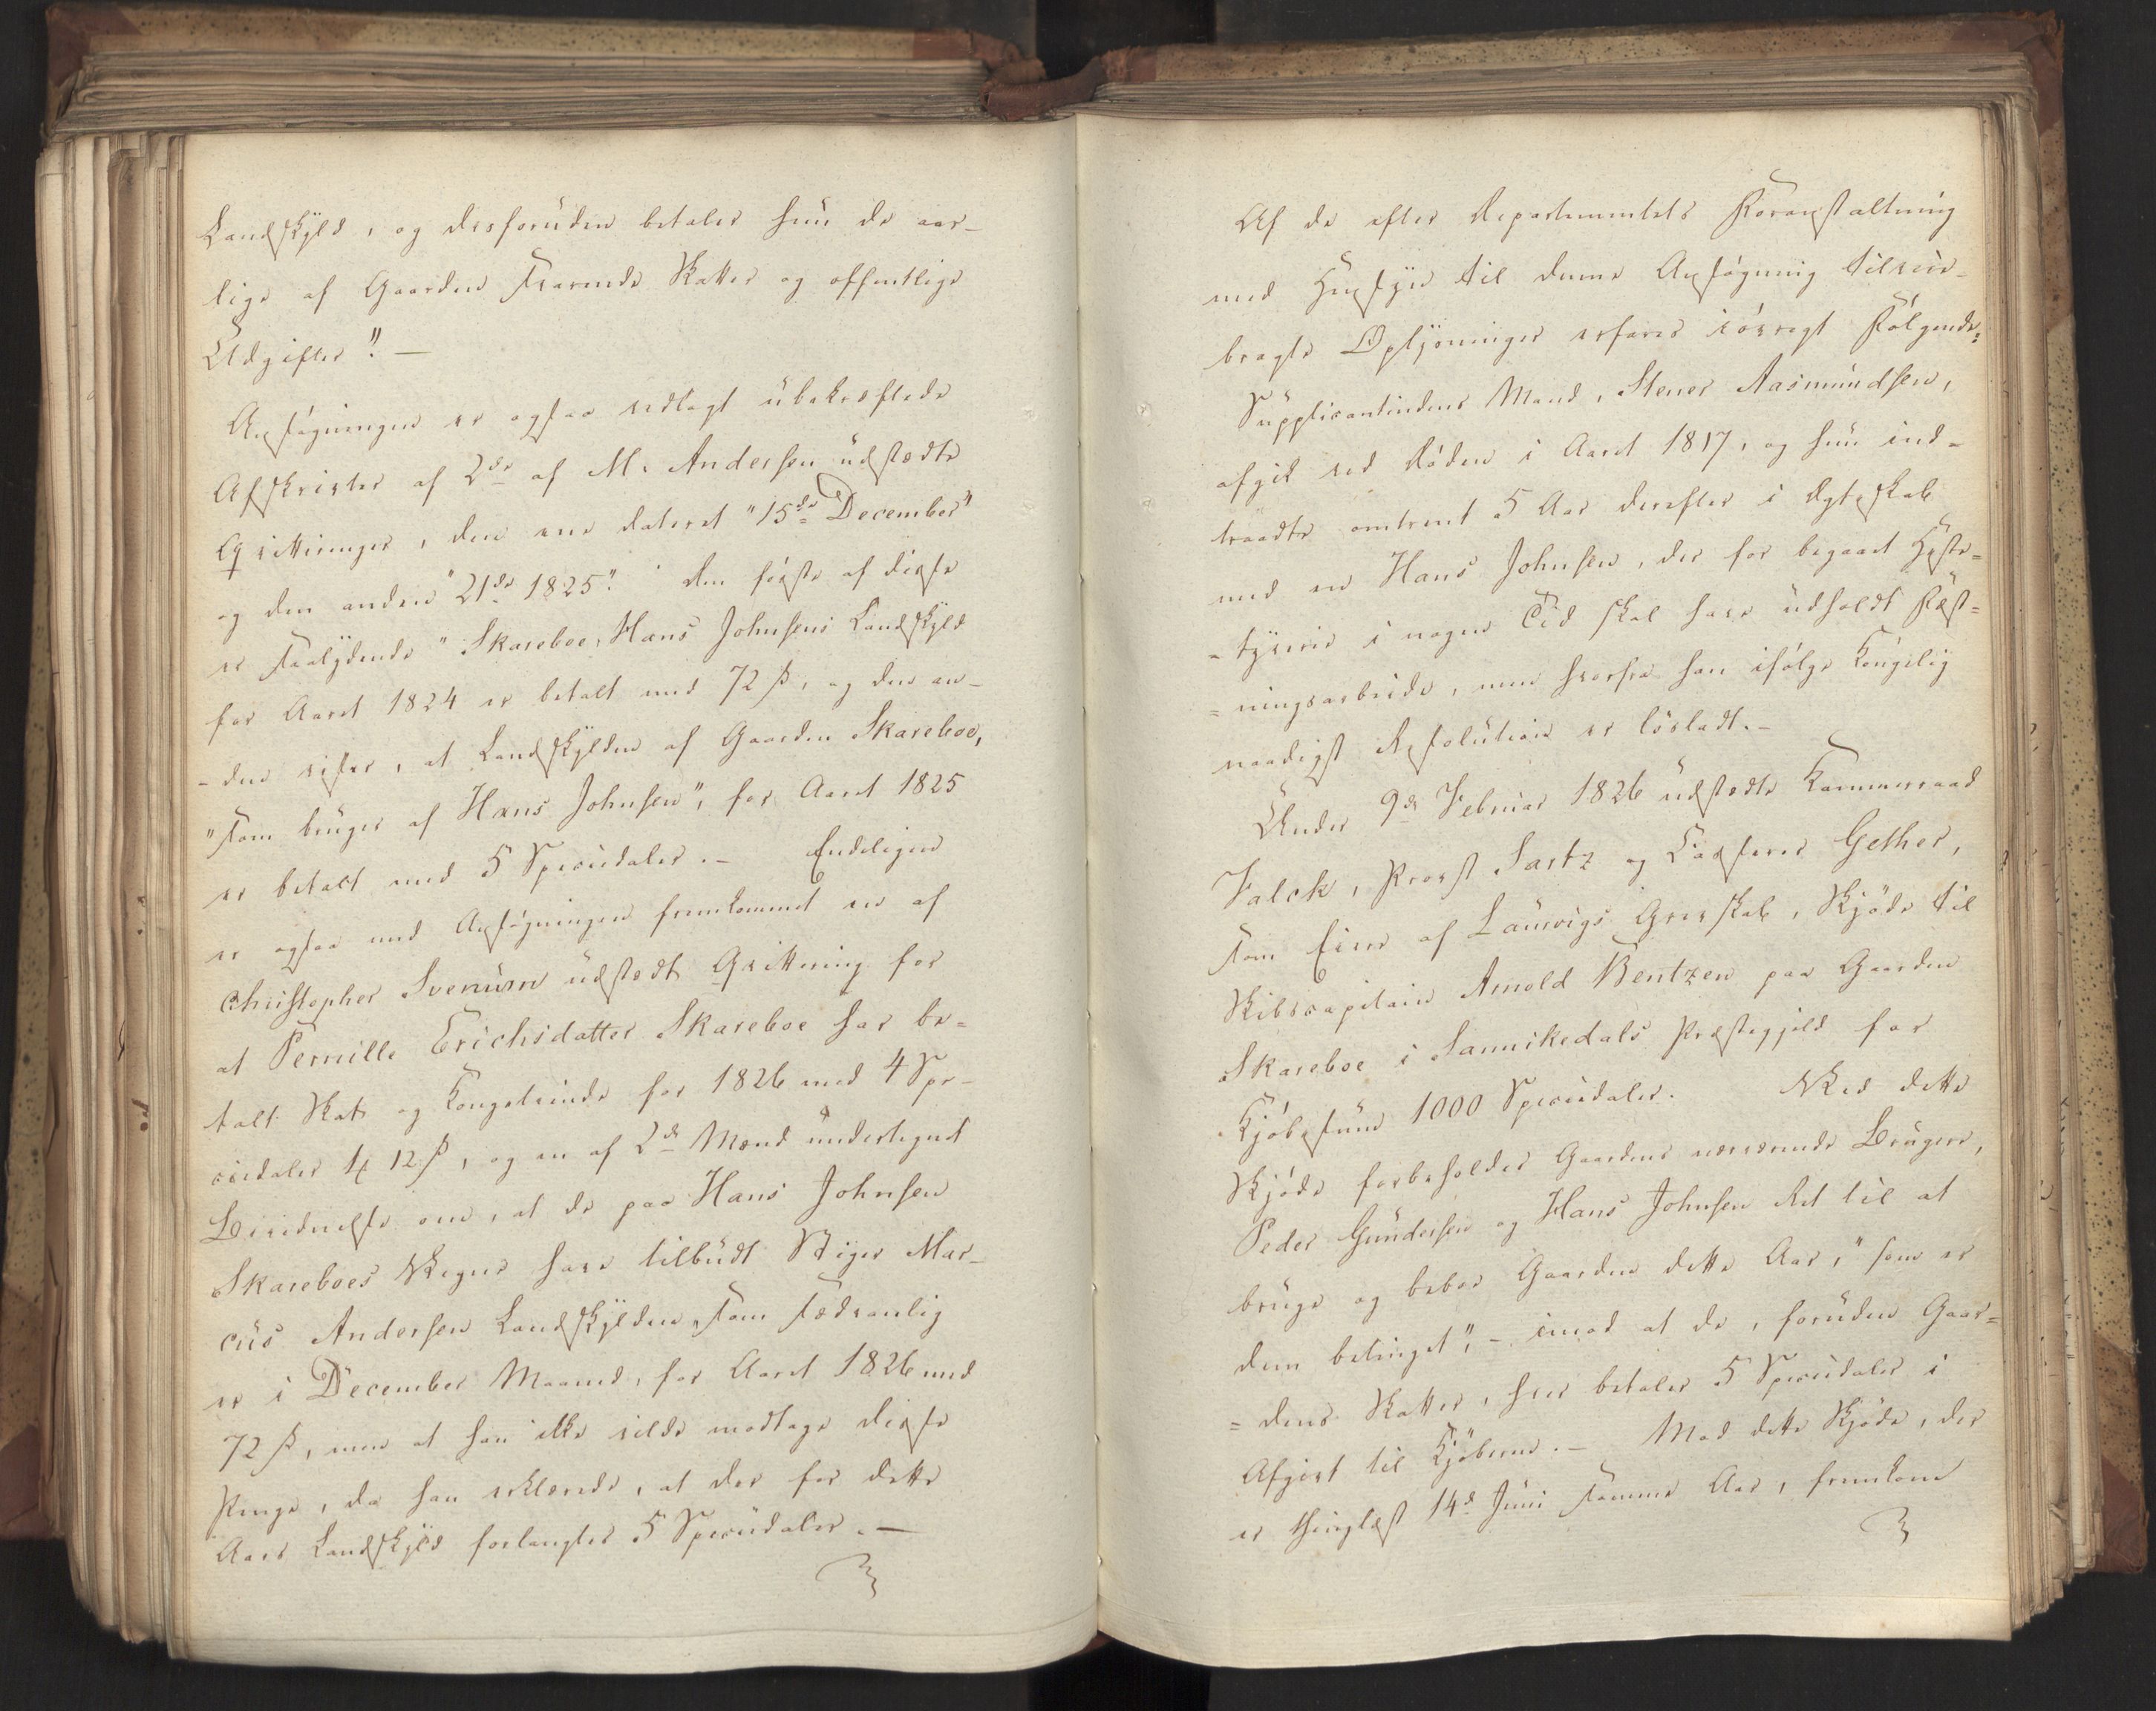 Landskyld, og desforuden betaler hun de aar-
lige af Gaarden svarende Skatter og offentlige
Udgifter". —
Ansøgningen er ogsaa vedlagt ubekræftede
Afskrifter af 2de af M. Andersen udstedte
Qvitteringer, den ene dateret "15de December"
og den anden "21de 1825". Den første af disse
er saalydende "Skareboe, Hans Johnsens Landskyld
for Aaret 1824 er betalt med 72 ß, og den an-
-den viser, at Landskylden af Gaarden Skareboe,
"som bruges af Hans Johnsen", for Aaret 1825
er betalt med 5 Speciedaler. – Endeligen
er ogsaa med Ansøgningen fremkommet en af
Christopher Svenum udstedt Qvittering for
at Pernille Erichsdatter Skareboe har be-
talt Skat og Kongetiende for 1826 med 4 Spe-
ciedaler 4 12 ß, og en af 2de Mænd undertegnet
Bevidnelse om, at de paa Hans Johnsen
Skareboes Vegne have tilbudt Stiger Mar-
cus Andersen Landskylden, som sædvanlig
er i December Maaned, for Aaret 1826 med
72 ß, men at han ikke vilde modtage disse
Penge, da han erklærede, at der for dette
Aars Landskyld forlangtes 5 Speciedaler. —
Af de efter Departementets Foranstaltning
med Hensyn til denne Ansøgning tilveie-
bragte Oplysninger erfares iøvrigt Følgende:
Supplicantindens Mand, Stener Aasmundsen,
afgik ved Døden i Aaret 1817, og hun ind-
traadte omtrent 5 Aar derefter i Ægteskab
med en Hans Johnsen, der for begaaet Heste-
-tyverie i nogen Tid skal have udholdt Fæst-
-ningsarbeide, men hvorfra han ifølge Kongelig
naadigst Resolution er løsladt. –
Under 9de Februar 1826 udstedte Kammerraad
Falck, Provst Sartz og Casserer Gether,
som Eiere af Laurvigs Grevskab, Skjøde til
Skibscapitain Arnold Bentzen paa Gaarden
Skareboe i Sannikedals Præstegjeld for
Kjøbesum 1000 Speciedaler. Ved dette
Skjøde forbeholdes Gaardens nærværende Brugere,
Peder Gundersen og Hans Johnsen Ret til at
bruge og beboe Gaarden dette Aar, "som er
dem betinget", – imod at de, foruden Gaar-
-dens Skatter, hver betaler 5 Speciedaler i
Afgivt til Kjøberen. – Mod dette Skjøde, der
er thinglæst 14de Juni samme Aar, fremkom